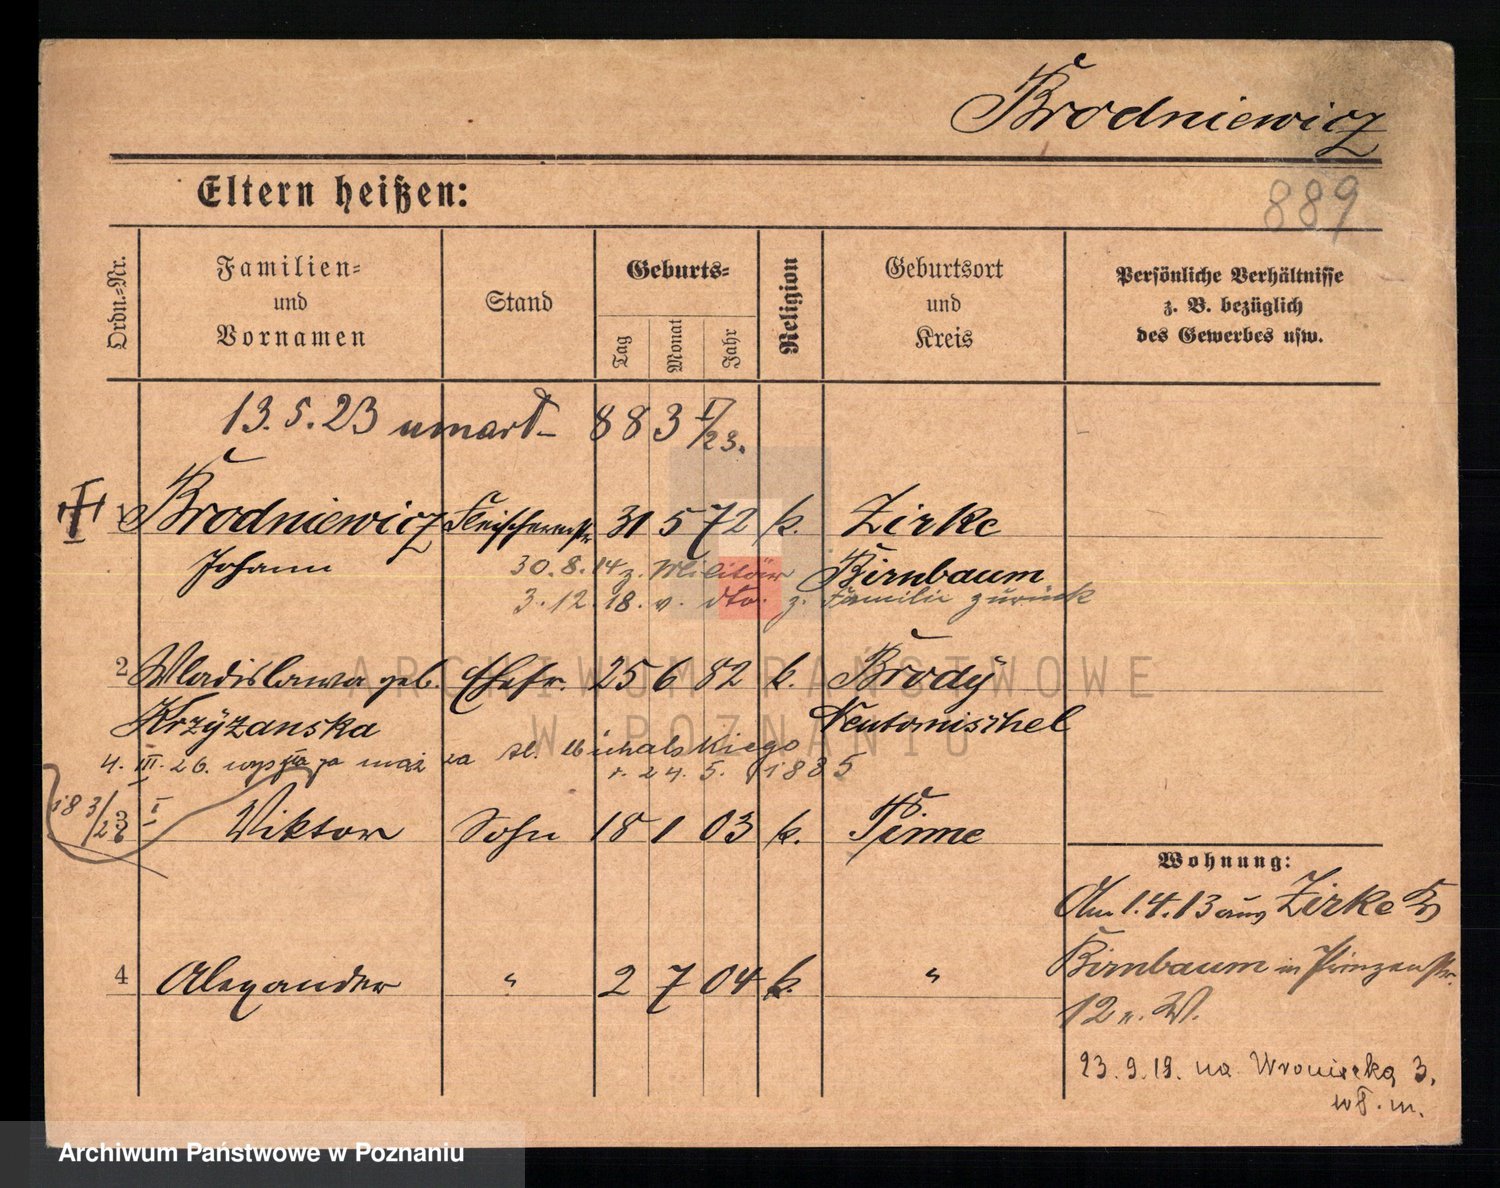 Brodniewicz
889
Eltern heißen:
Ordn.-Nr.
Familien-
und
Vornamen
Stand
Geburts-
Tag
Monat
Jahr
Religion
Geburtsort
und
Kreis
Persönliche Verhältnisse
z. B. bezüglich
des Gewerbes usw.
13.5.23 umarł 883 V/23.
1 Brodniewicz Fleischermstr 31 5 72 k. Zirke
Johann Birnbaum
30.8.14 z. Militär
3.12.18. v. dto. z. Familie zurück
2 Wladislawa geb. Ehefr. 25 6 82 k. Brody
Krzyżanska Neutomischel
4. III. 26. wyszła za mąż za St. Michalskiego
r. 24. 5. 1885
Viktor Sohn 18 1 03 k. Pinne
Wohnung:
Am 1.4.13 aus Zirke Kr
Birnbaum in Prinzenstr.
12 n. W.
4 Alexander " 2 7 04 k. "
23.9.19. na Wroniecką 3.
wł. m.
ARCHIWUM PAŃSTWOWE
W POZNANIU
Archiwum Państwowe w Poznaniu